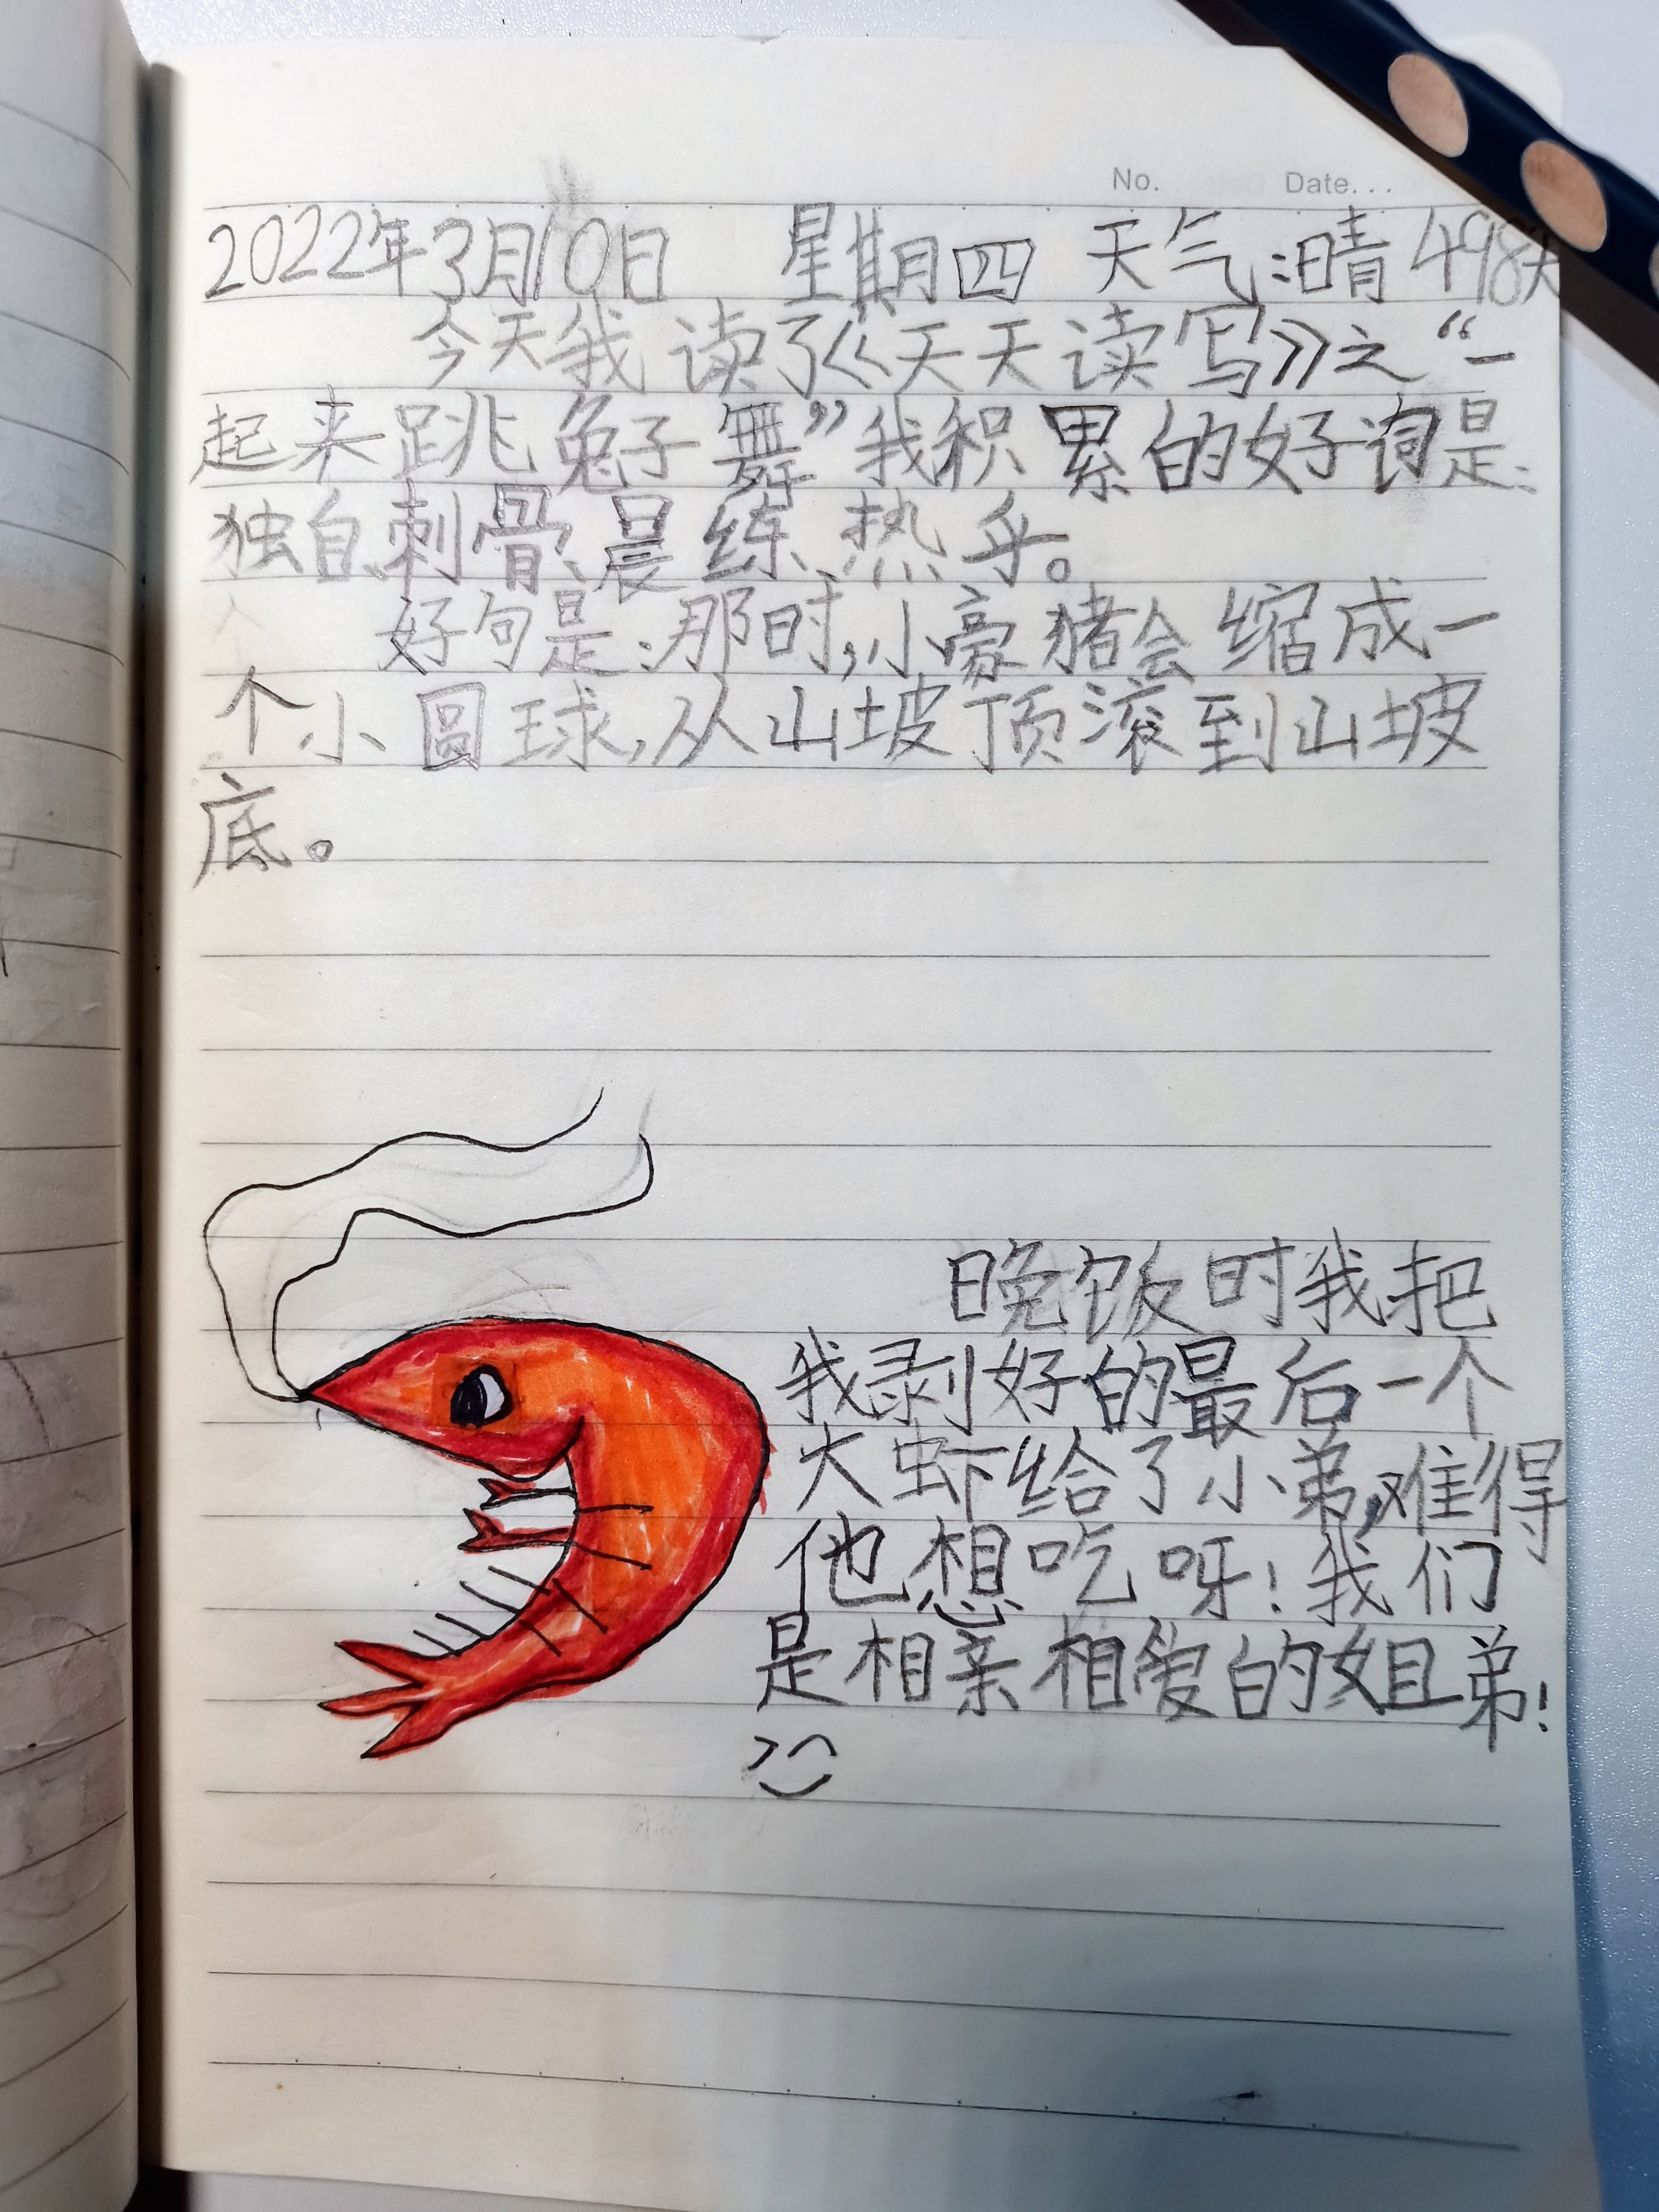 No. Date...
2022年3月10日 星期四 天气:晴 498天
今天我读了《天天读写》之“一
起来跳兔子舞”我积累的好词是:
独自、刺骨、晨练、热乎。
好句是:那时,小豪猪会缩成一
个小圆球,从山坡顶滚到山坡
底。
晚饭时我把
我剥好的最后一个
大虾给了小弟,难得
他想吃呀!我们
是相亲相爱的姐弟!